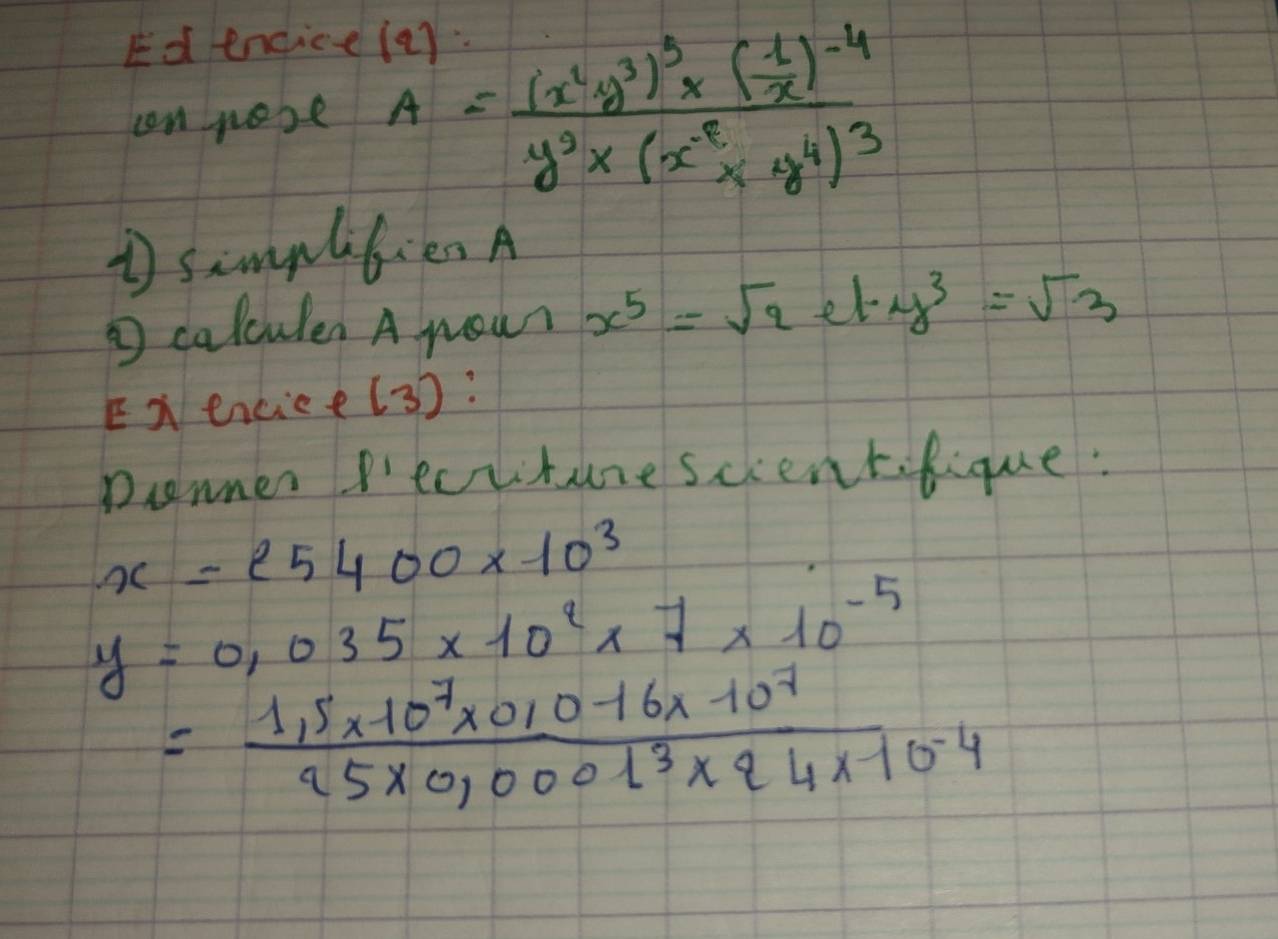 Exercice (2) :
on pose A = ((x²y³)⁵ × (1/x)⁻⁴) / (y⁹ × (x⁻² × y⁴)³)
1) simplifier A
2) calculer A pour x⁵ = √2 et y³ = √3
Exercice (3) :
Donner l'ecriture scientifique :
x = 25400 × 10³
y = 0,035 × 10² × 7 × 10⁻⁵
= (1,5 × 10⁷ × 0,016 × 10⁷) / (25 × 0,0001³ × 24 × 10⁻⁴)